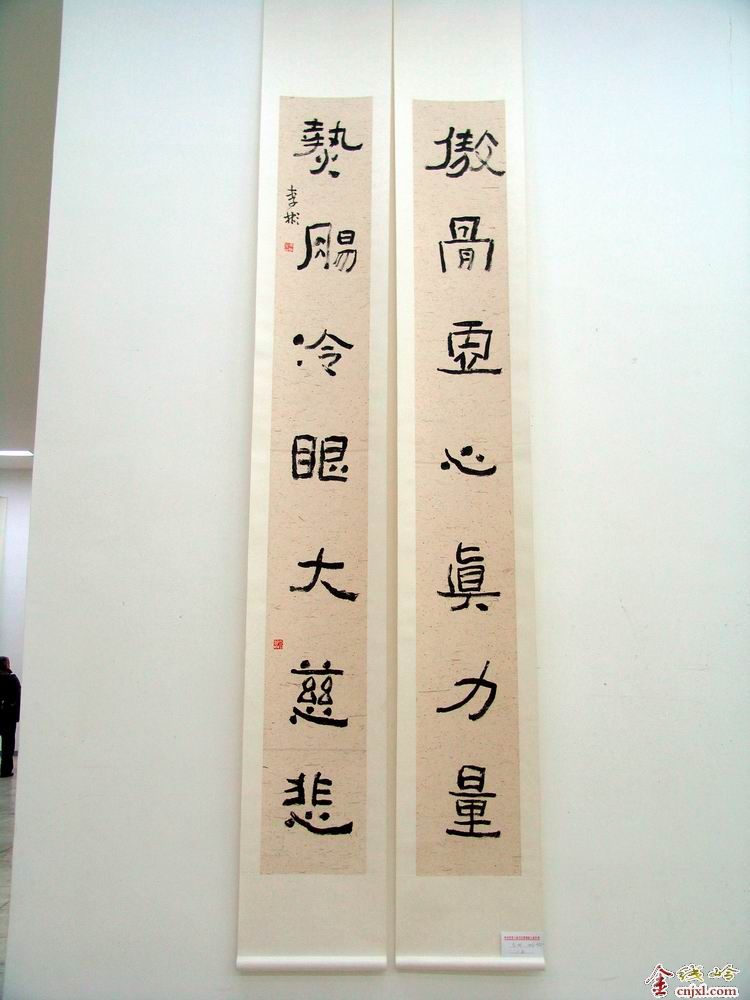 傲骨虛心真力量
熱腸冷眼大慈悲
李彬
金钱岭
cnjxl.com